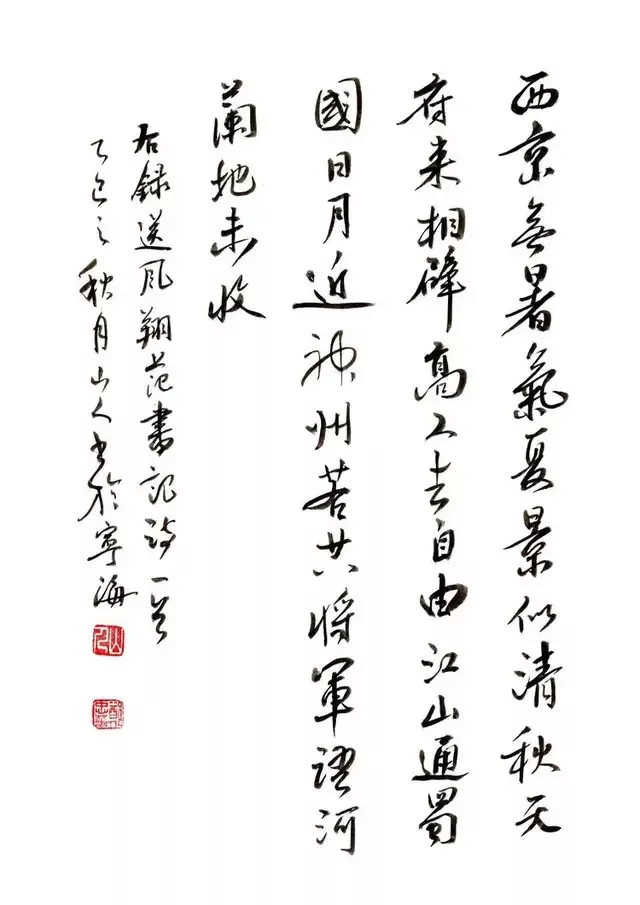 西京無暑氣夏景似清秋天
府来相辟高人去自由江山通蜀
國日月近神州若共将軍語河
蘭地未收
右録送风翔范書記詩一首
乙巳之秋月山人书於寧海